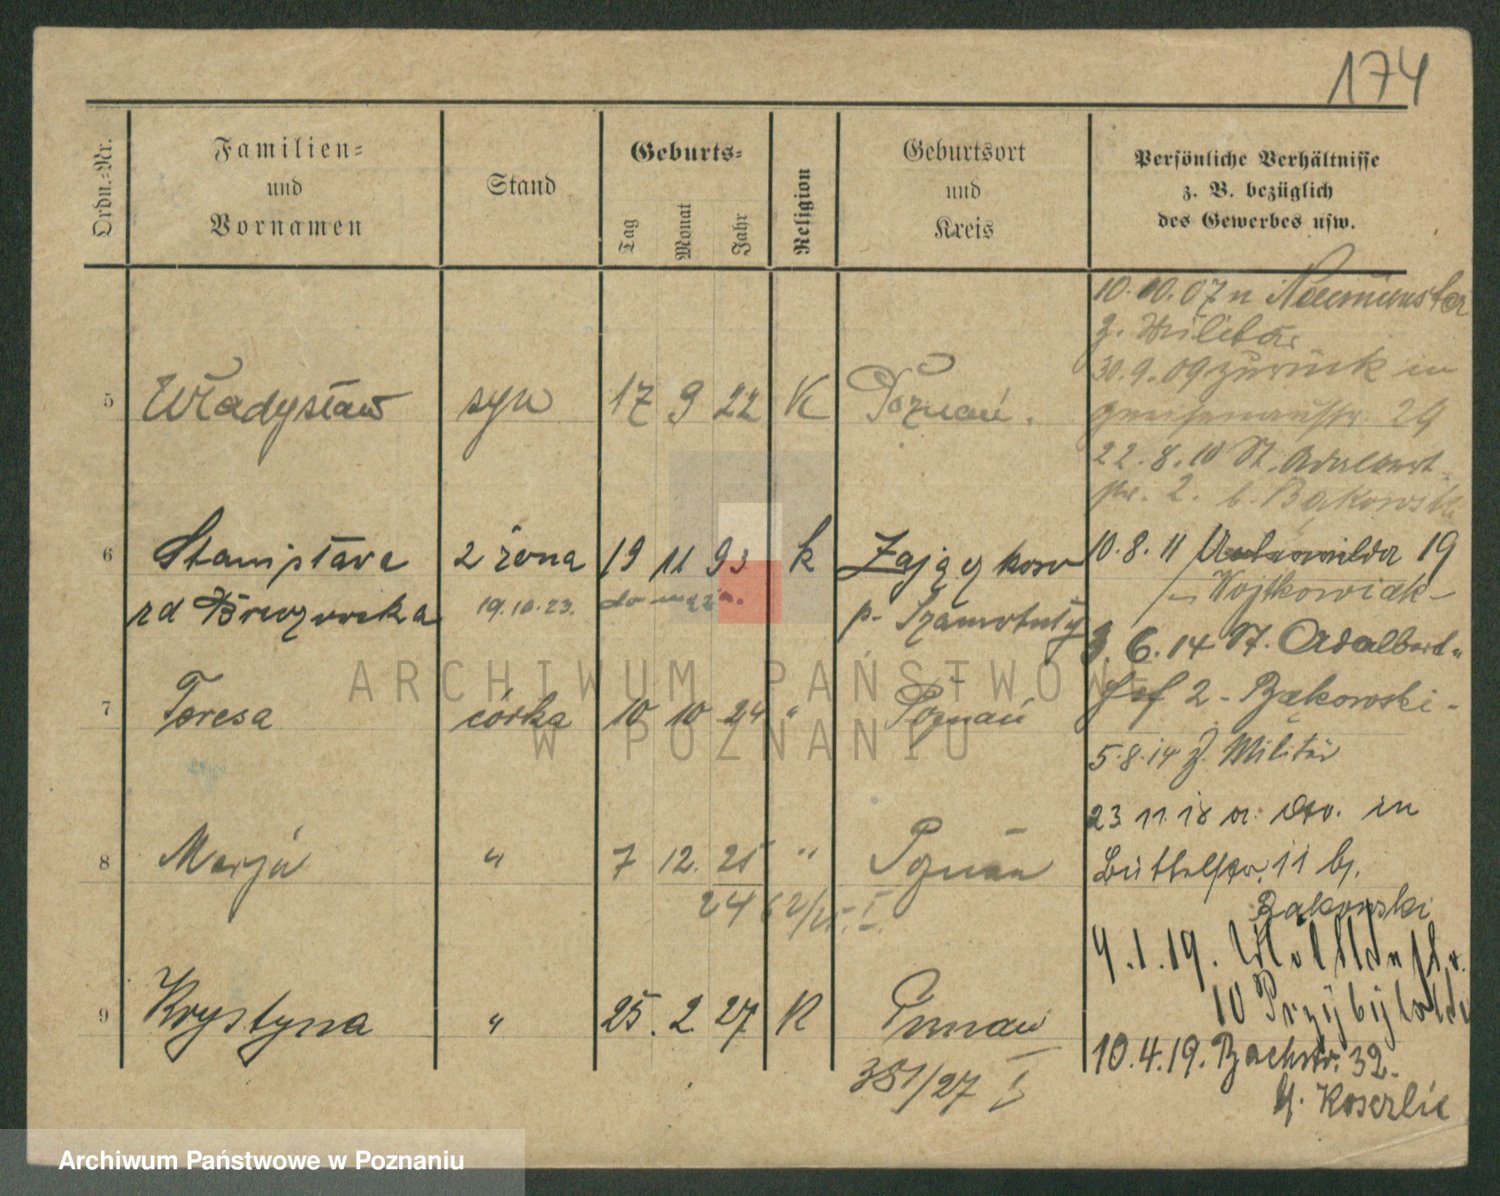 174
Ordn.-Nr.
Familien-
und
Vornamen
Stand
Geburts-
Tag
Monat
Jahr
Religion
Geburtsort
und
Kreis
Persönliche Verhältnisse
z. B. bezüglich
des Gewerbes usw.
5 Władysław syn 17 9 22 K Poznań.
6 Stanisława 2 żona 19 11 93 k
19.10.23. do męża. p. Szamotuły
7 Teresa córka 10 10 24 " Poznań
8 Marja " 7 12. 25 " Poznań
9 Krystyna " 25. 2 27 K
381/27 I
10.10.07 n Neumünster
z. Militär
30.9.09 zurück in
Gneisenaustr. 29
22.8.10 St. Adalbert-
str. 2. b. Bąkowski
10.8.11 19
Wojtkowiak-
3.6.14 St. Adalbert-
2 - Bąkowski-
5.8.14 z. Militär
23 11 18 in
Büttelstr. 11 bj.
Bąkowski
4.1.19.
10
10.4.19. Bachstr. 32.
ARCHIWUM PAŃSTWOWE
W POZNANIU
Archiwum Państwowe w Poznaniu